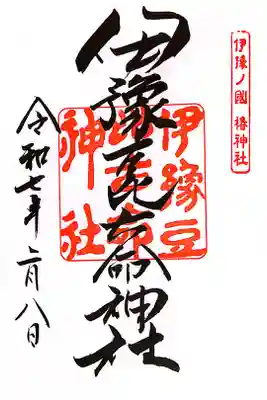 伊豫ノ國 椿神社
伊豫豆比古命神社
伊豫豆
神社
令和七年二月八日